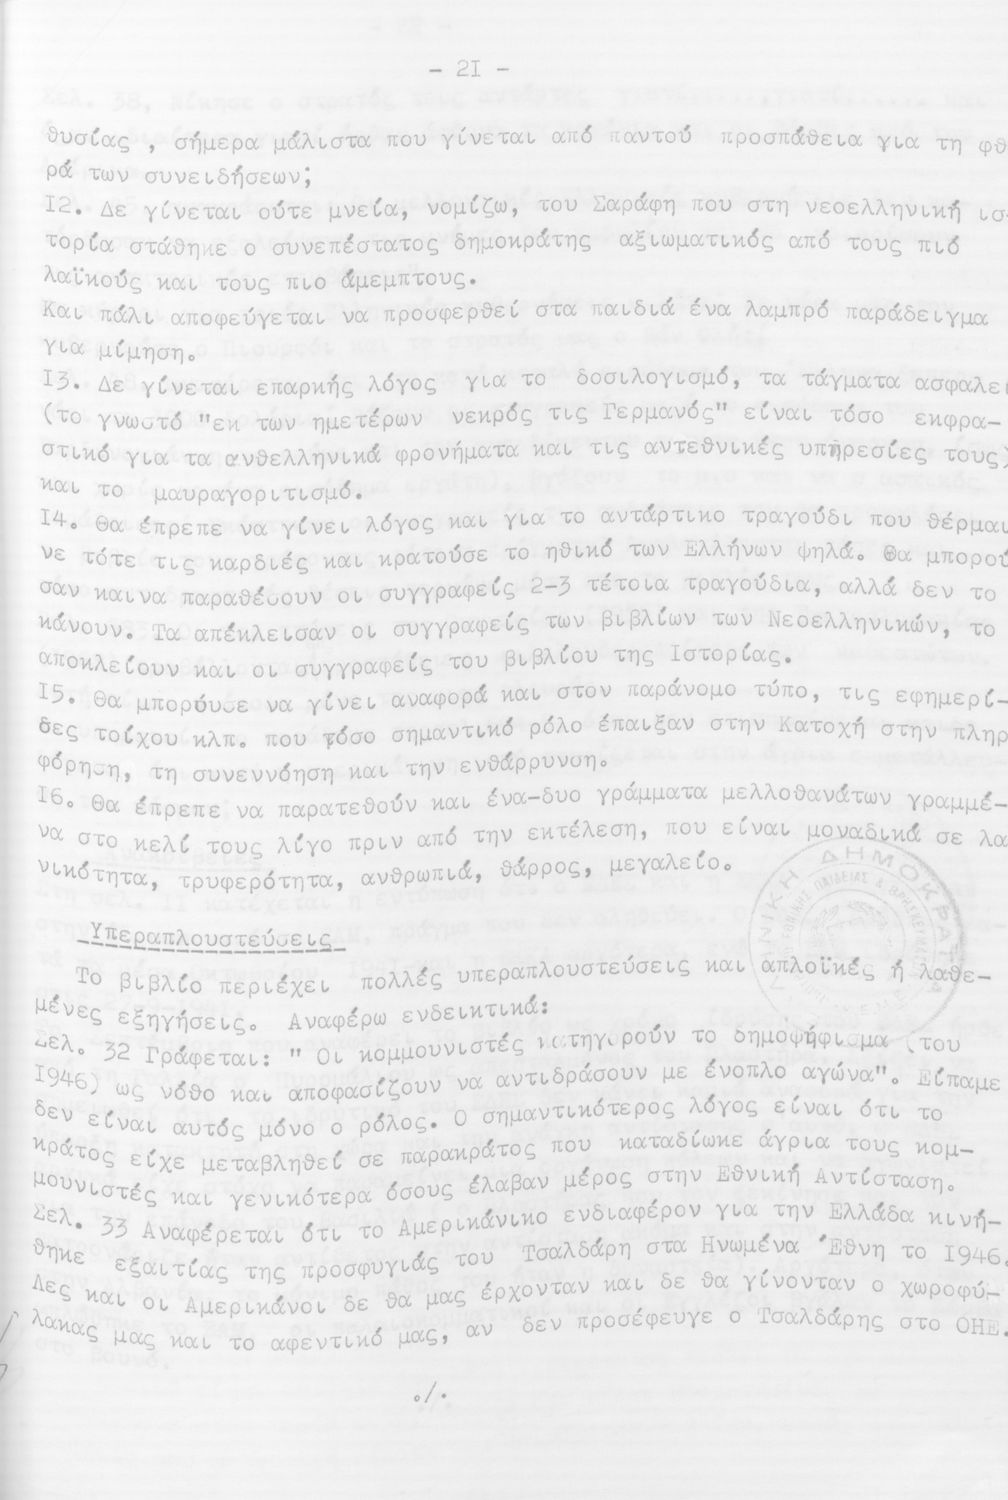 - 2I -
θυσίας , σήμερα μάλιστα που γίνεται από παντού προσπάθεια για τη φθ
ρά των συνειδήσεων;
I2. Δε γίνεται ούτε μνεία, νομίζω, του Σαράφη που στη νεοελληνική ισ-
τορία στάθηκε ο συνεπέστατος δημοκράτης αξιωματικός από τους πιό
λαϊκούς και τους πιο άμεμπτους.
Και πάλι αποφεύγεται να προσφερθεί στα παιδιά ένα λαμπρό παράδειγμα
για μίμηση.
I3. Δε γίνεται επαρκής λόγος για το δοσιλογισμό, τα τάγματα ασφαλεί
(το γνωστό "εκ των ημετέρων νεκρός τις Γερμανός" είναι τόσο εκφρα-
στικό για τα ανθελληνικά φρονήματα και τις αντεθνικές υπηρεσίες τους)
και το μαυραγοριτισμό.
I4. Θα έπρεπε να γίνει λόγος και για το αντάρτικο τραγούδι που θέρμαι
νε τότε τις καρδιές και κρατούσε το ηθικό των Ελλήνων ψηλά. Θα μπορού
σαν καινα παραθέσουν οι συγγραφείς 2-3 τέτοια τραγούδια, αλλά δεν το
κάνουν. Τα απέκλεισαν οι συγγραφείς των βιβλίων των Νεοελληνικών, το
αποκλείουν και οι συγγραφείς του βιβλίου της Ιστορίας.
I5. Θα μπορούσε να γίνει αναφορά και στον παράνομο τύπο, τις εφημερί-
δες τοίχου κλπ. που τόσο σημαντικό ρόλο έπαιξαν στην Κατοχή στην πληρ
φόρηση, τη συνεννόηση και την ενθάρρυνση.
I6. Θα έπρεπε να παρατεθούν και ένα-δυο γράμματα μελλοθανάτων γραμμέ-
να στο κελί τους λίγο πριν από την εκτέλεση, που είναι μοναδικά σε λα
νικότητα, τρυφερότητα, ανθρωπιά, θάρρος, μεγαλείο.
Υπεραπλουστεύσεις
Το βιβλίο περιέχει πολλές υπεραπλουστεύσεις και απλοϊκές ή λαθε-
μένες εξηγήσεις. Αναφέρω ενδεικτικά:
Σελ. 32 Γράφεται: " Οι κομμουνιστές κατηγορούν το δημοψήφισμα (του
I946) ως νόθο και αποφασίζουν να αντιδράσουν με ένοπλο αγώνα". Είπαμε
δεν είναι αυτός μόνο ο ρόλος. Ο σημαντικότερος λόγος είναι ότι το
κράτος είχε μεταβληθεί σε παρακράτος που καταδίωκε άγρια τους κομ-
μουνιστές και γενικότερα όσους έλαβαν μέρος στην Εθνική Αντίσταση.
Σελ. 33 Αναφέρεται ότι το Αμερικάνικο ενδιαφέρον για την Ελλάδα κινή-
θηκε εξαιτίας της προσφυγιάς του Τσαλδάρη στα Ηνωμένα Έθνη το I946.
Λες και οι Αμερικάνοι δε θα μας έρχονταν και δε θα γίνονταν ο χωροφύ-
λακας μας και το αφεντικό μας, αν δεν προσέφευγε ο Τσαλδάρης στο ΟΗΕ.
./.